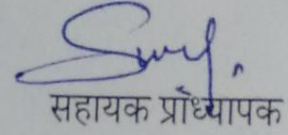 सहायक प्राध्यापक